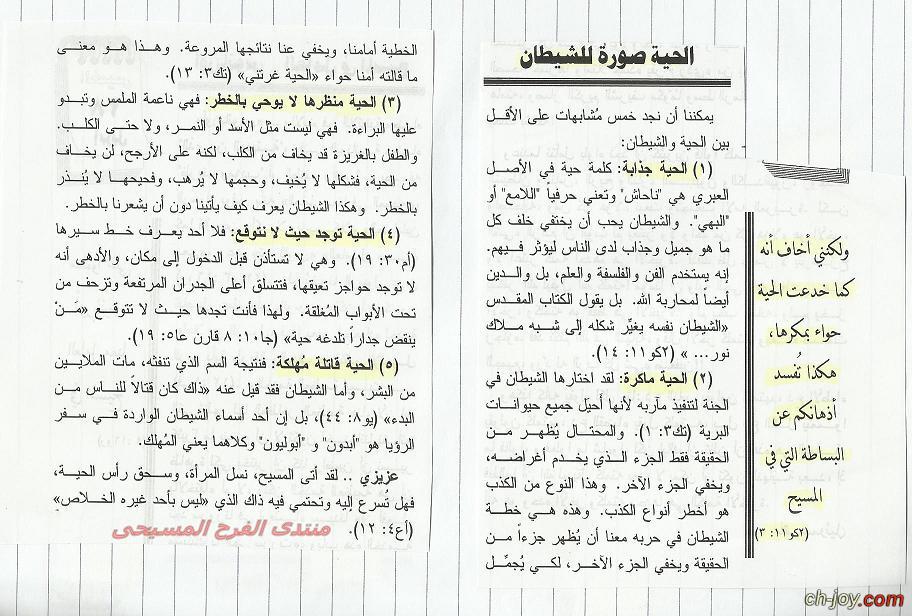 الحية صورة للشيطان
يمكننا أن نجد خمس مُشابهات على الأقل
بين الحية والشيطان:
(١) الحية جذابة: كلمة حية في الأصل
العبري هي "ناحاش" وتعني حرفياً "اللامع" أو
"البهي". والشيطان يحب أن يختفي خلف كل
ما هو جميل وجذاب لدى الناس ليؤثر فيهم.
إنه يستخدم الفن والفلسفة والعلم، بل والدين
أيضاً لمحاربة الله. بل يقول الكتاب المقدس
«الشيطان نفسه يغيِّر شكله إلى شبه ملاك
نور... » (٢كو١١: ١٤).
(٢) الحية ماكرة: لقد اختارها الشيطان في
الجنة لتنفيذ مآربه لأنها أحيَل جميع حيوانات
البرية (تك٣: ١). والمحتال يُظهر من
الحقيقة فقط الجزء الذي يخدم أغراضه،
ويخفي الجزء الآخر. وهذا النوع من الكذب
هو أخطر أنواع الكذب. وهذه هي خطة
الشيطان في حربه معنا أن يُظهر جزءاً من
الحقيقة ويخفي الجزء الآخر، لكي يُجمِّل
ولكنني أخاف أنه
كما خدعت الحية
حواء بمكرها،
هكذا تُفسد
أذهانكم عن
البساطة التي في
المسيح
(٢كو١١: ٣)
الخطية أمامنا، ويخفي عنا نتائجها المروعة. وهذا هو معنى
ما قالته أمنا حواء «الحية غرتني» (تك٣: ١٣).
(٣) الحية منظرها لا يوحي بالخطر: فهي ناعمة الملمس وتبدو
عليها البراءة. فهي ليست مثل الأسد أو النمر، ولا حتى الكلب.
والطفل بالغريزة قد يخاف من الكلب، لكنه على الأرجح، لن يخاف
من الحية، فشكلها لا يُخيف، وحجمها لا يُرهب، وفحيحها لا يُنذر
بالخطر. وهكذا الشيطان يعرف كيف يأتينا دون أن يشعرنا بالخطر.
(٤) الحية توجد حيث لا نتوقع: فلا أحد يعرف خط سيرها
(أم٣٠: ١٩). وهي لا تستأذن قبل الدخول إلى مكان، والأدهى أنه
لا توجد حواجز تعيقها، فتتسلق أعلى الجدران المرتفعة وتزحف من
تحت الأبواب المُغلقة. ولهذا فأنت تجدها حيث لا تتوقع «مَنْ
ينقض جداراً تلدغه حية» (جا١٠: ٨ قارن عا٥: ١٩).
(٥) الحية قاتلة مُهلكة: فنتيجة السم الذي تنفثه، مات الملايين
من البشر، وأما الشيطان فقد قيل عنه «ذاك كان قتالاً للناس من
البدء» (يو٨: ٤٤)، بل إن أحد أسماء الشيطان الواردة في سفر
الرؤيا هو "أبدون" و "أبوليون" وكلاهما يعني المُهلك.
عزيزي .. لقد أتى المسيح، نسل المرأة، وسحق رأس الحية،
فهل تُسرع إليه وتحتمي فيه ذاك الذي «ليس بأحد غيره الخلاص»
(أع٤: ١٢).
منتدى الفرح المسيحى
ch-joy.com